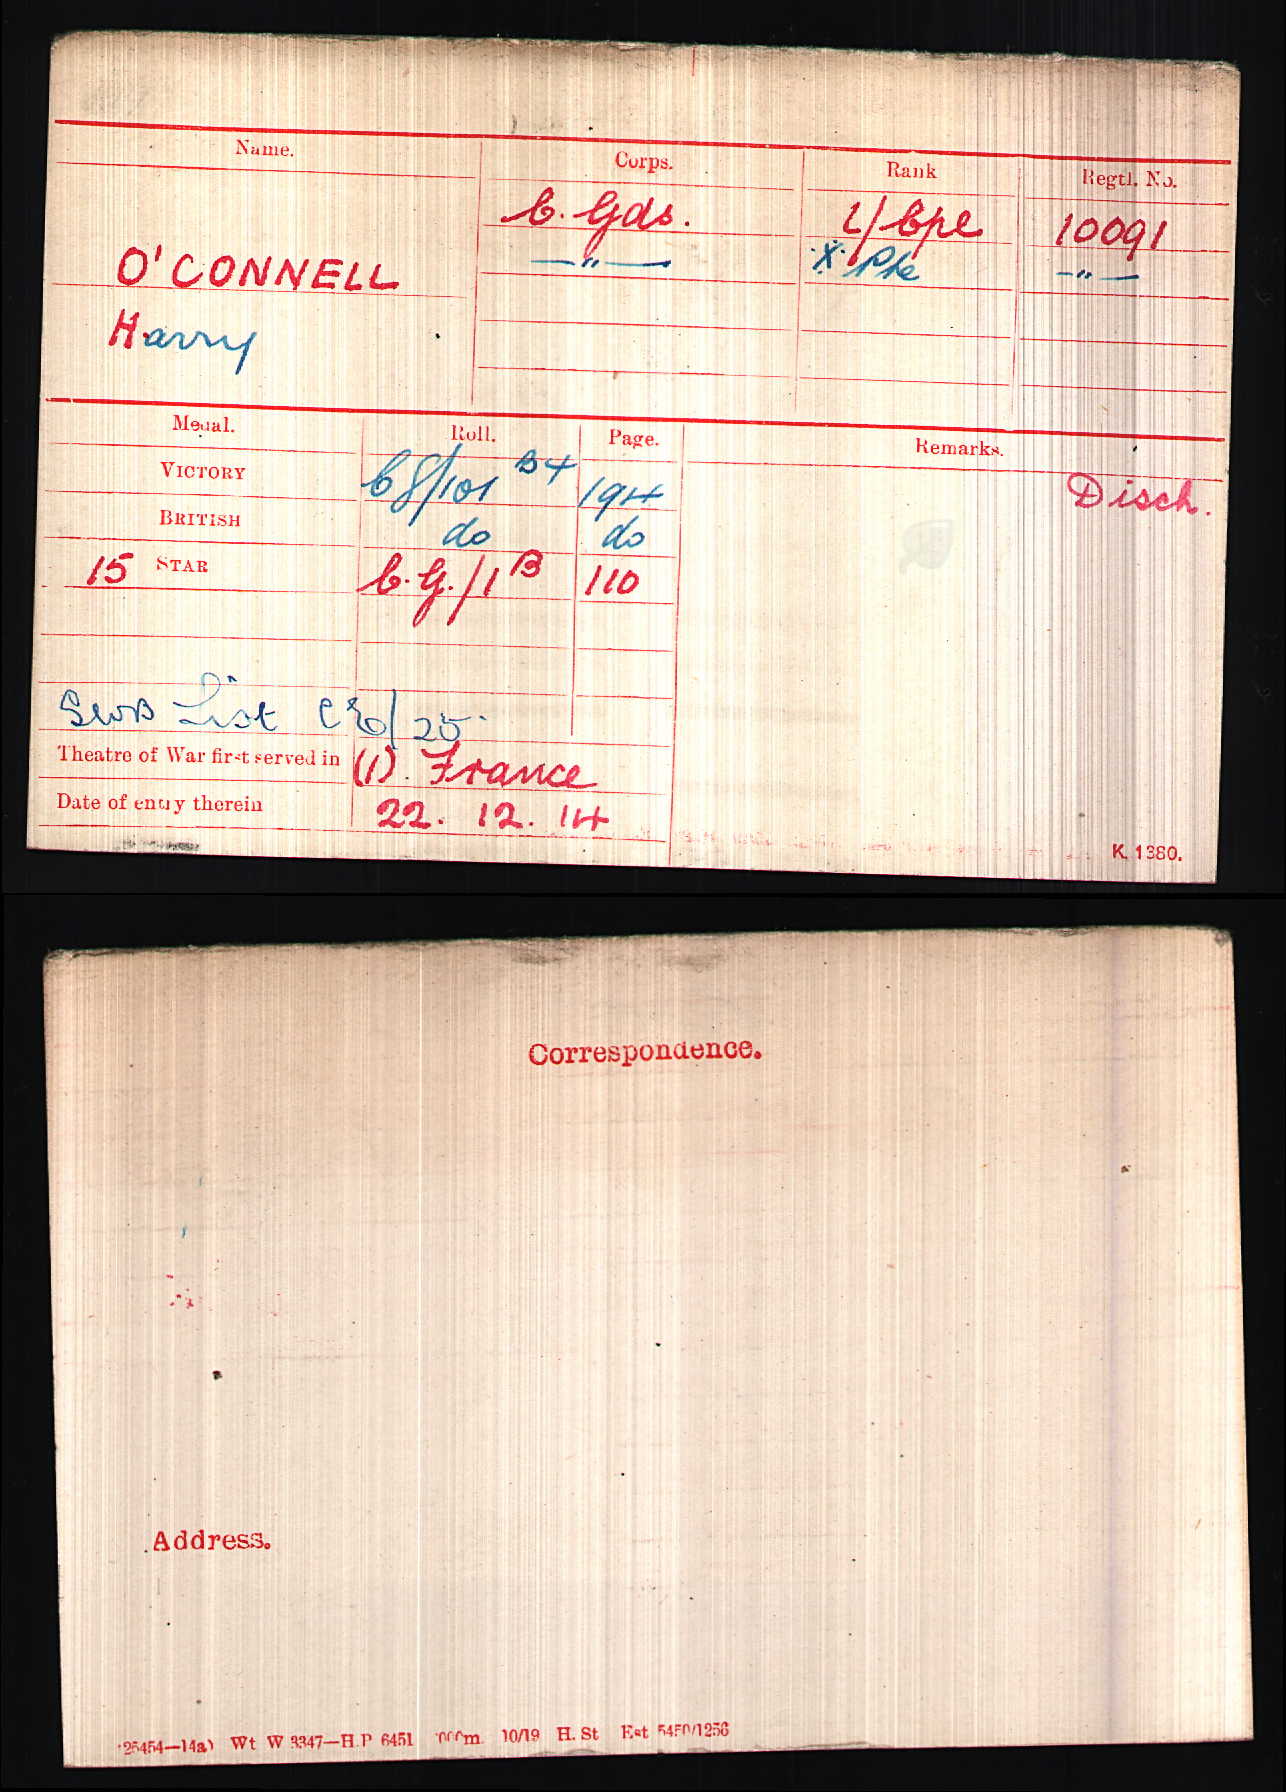 Name. Corps. Rank Regtl. No.
C. Gds. L/Cpl 10091
O'CONNELL —"— X Pte —"—
Harry
Medal. Roll. Page. Remarks.
VICTORY CG/101 B4 194 Disch.
BRITISH do do
15 STAR C.G./1 B 110
SWB List CG/25.
Theatre of War first served in (1). France
Date of entry therein 22. 12. 14
K. 1380.
Correspondence.
Address.
Wt W 3347—H.P 6451 10/19 H. St